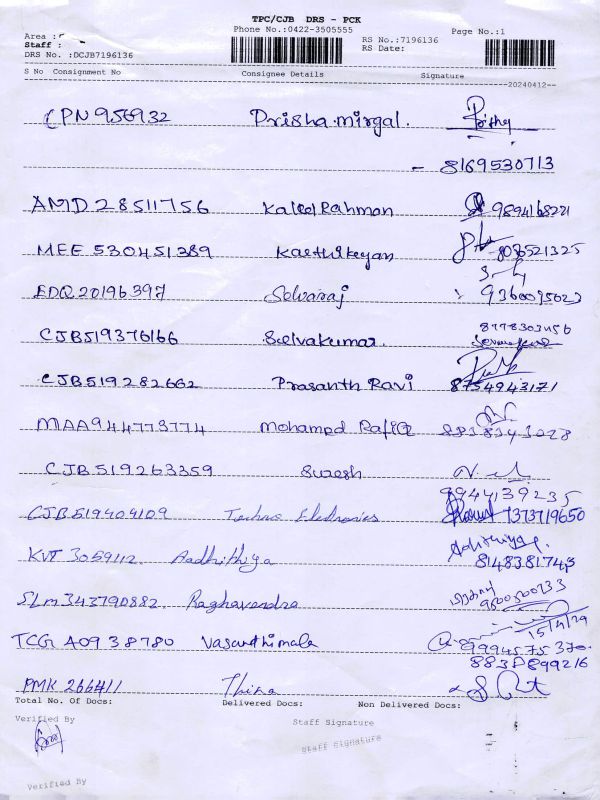 TPC/CJB DRS - PCK
Area :
Phone No.:0422-3505555
Page No.:1
Staff :
RS No.:7196136
DRS No. :DCJB7196136
RS Date:
S No Consignment No Consignee Details Signature
20240412
CPN 956932 Prisha.mirgal.
- 8169530713
AMD 28511756 Kaleel Rahman 9894168221
MEE 530451389 Karthikeyan
EDQ 20196397 Selvaraj
CJB519376166 Selvakumar. 8778303456
CJB519282662 Prasanth Ravi 8754943171
MAA944773774 Mohamed Rafiq 8838343028
CJB519263359 Suresh
9944139235
CJB519409109 Electronics 7373719650
KVT 3059112 Aadhithiya
8148381743
SLM343790882 Raghavendra
15/4/24
TCG A0938780 Vasanthimala
PMK 266411 Thina
Total No. Of Docs: Delivered Docs: Non Delivered Docs:
Verified By Staff Signature
Staff Signature
Verified By